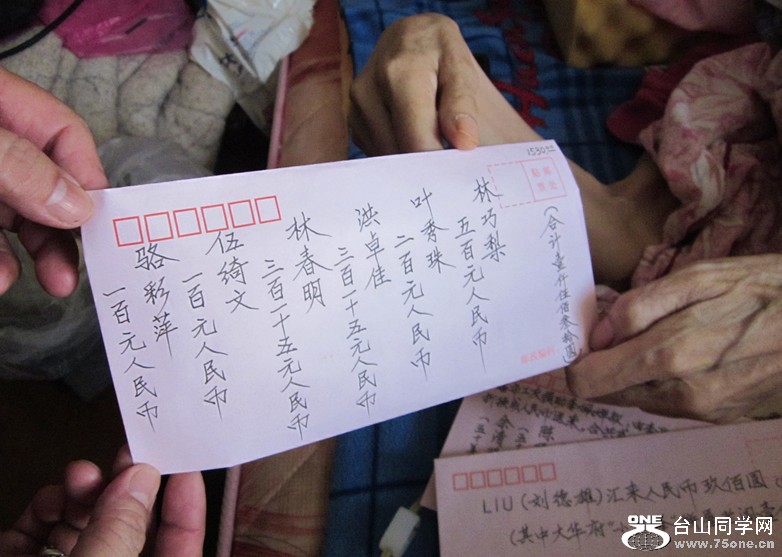 1530.00
贴邮票处
(合计壹仟伍佰叁拾圆)
林巧梨
五百元人民币
叶秀珠
二百元人民币
洪卓佳
三百十五元人民币
林春明
三百十五元人民币
伍绮文
一百元人民币
骆彩萍
一百元人民币
邮政编码
LIU (刘德雄) 汇来人民币玖佰圆
(其中大华府
ONE 台山同学网
www.75one.cn